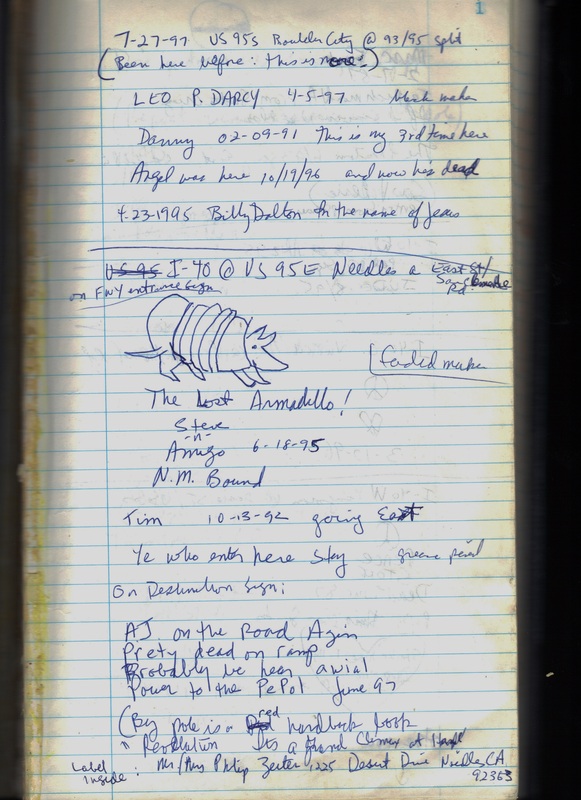 1
7-27-97 US 95s Boulder City @ 93/95 split
(Been here before: this is more:)
LEO P. DARCY 4-5-97 black maker
Danny 02-09-91 This is my 3rd time here
Angel was here 10/19/96 and now he's dead
4-23-1995 Billy Dalton In the name of Jesus
US 95 I-40 @ US 95 E Needles a East St/
on FWY entrance sign Rd.
faded maker
The Lost Armadillo!
Steve
-n-
Amigo 6-18-95
N.M. Bound
Tim 10-13-92 going East
Ye who enter here stay green pencil
On Destination Sign:
AJ on the Road Agin
Prety dead on ramp
Probably be hear awial
Power to the PePol June 97
(By pole is a red hardback book
Revolution Its a Grand Climax at
Label Inside: Mr/Mrs Philip 1225 Desert Drive Needles, CA.
92363